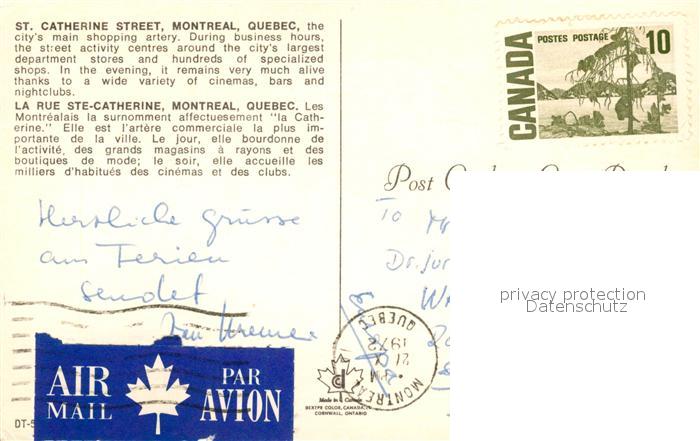 ST. CATHERINE STREET, MONTREAL, QUEBEC, the
city's main shopping artery. During business hours,
the street activity centres around the city's largest
department stores and hundreds of specialized
shops. In the evening, it remains very much alive
thanks to a wide variety of cinemas, bars and
nightclubs.
LA RUE STE-CATHERINE, MONTREAL, QUEBEC. Les
Montréalais la surnomment affectuesement "la Cath-
erine." Elle est l'artère commerciale la plus im-
portante de la ville. Le jour, elle bourdonne de
l'activité, des grands magasins à rayons et des
boutiques de mode; le soir, elle accueille les
milliers d'habitués des cinémas et des clubs.
Herzliche Grüsse
aus Ferien
sendet
AIR
MAIL
PAR
AVION
DT-5
Made in Canada
DEXTER COLOR, CANADA,
CORNWALL, ONTARIO
CANADA
POSTES POSTAGE
10
Post
To
Dr. jur
MONTREAL
QUEBEC
PM
21
1972
privacy protection
Datenschutz